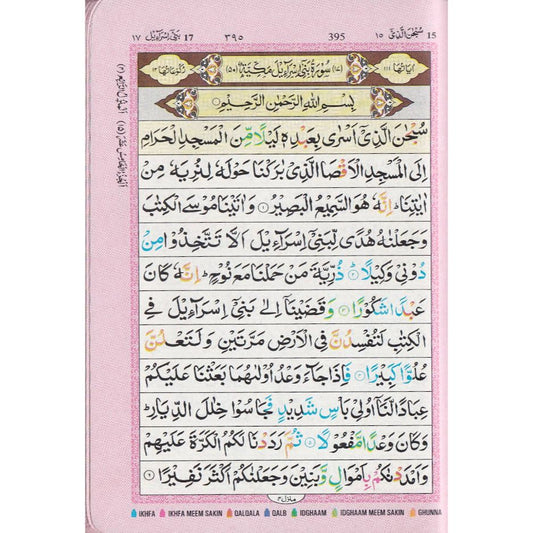 ١٧ بَنِیْٓ اِسْرَآءِیْل 17 ٣٩٥ 395 سُبْحٰنَ الَّذِیْٓ ١٥ 15
اٰیَاتُهَا ١١١ (١٧) سُوْرَةُ بَنِیْٓ اِسْرَآءِیْلَ مَكِّیَّةٌ (٥٠) رُكُوْعَاتُهَا ١٢
بِسْمِ اللّٰهِ الرَّحْمٰنِ الرَّحِیْمِ
سُبْحٰنَ الَّذِیْٓ اَسْرٰی بِعَبْدِهٖ لَیْلًا مِّنَ الْمَسْجِدِ الْحَرَامِ
اِلَی الْمَسْجِدِ الْاَقْصَا الَّذِیْ بٰرَكْنَا حَوْلَهٗ لِنُرِیَهٗ مِنْ
اٰیٰتِنَا ؕ اِنَّهٗ هُوَ السَّمِیْعُ الْبَصِیْرُ ۝١ وَاٰتَیْنَا مُوْسَی الْكِتٰبَ
وَجَعَلْنٰهُ هُدًی لِّبَنِیْٓ اِسْرَآءِیْلَ اَلَّا تَتَّخِذُوْا مِنْ
دُوْنِیْ وَكِیْلًا ۝٢ؕ ذُرِّیَّةَ مَنْ حَمَلْنَا مَعَ نُوْحٍ ؕ اِنَّهٗ كَانَ
عَبْدًا شَكُوْرًا ۝٣ وَقَضَیْنَآ اِلٰی بَنِیْٓ اِسْرَآءِیْلَ فِی
الْكِتٰبِ لَتُفْسِدُنَّ فِی الْاَرْضِ مَرَّتَیْنِ وَلَتَعْلُنَّ
عُلُوًّا كَبِیْرًا ۝٤ فَاِذَا جَآءَ وَعْدُ اُوْلٰىهُمَا بَعَثْنَا عَلَیْكُمْ
عِبَادًا لَّنَآ اُولِیْ بَاْسٍ شَدِیْدٍ فَجَاسُوْا خِلٰلَ الدِّیَارِ ؕ
وَكَانَ وَعْدًا مَّفْعُوْلًا ۝٥ ثُمَّ رَدَدْنَا لَكُمُ الْكَرَّةَ عَلَیْهِمْ
وَاَمْدَدْنٰكُمْ بِاَمْوَالٍ وَّبَنِیْنَ وَجَعَلْنٰكُمْ اَكْثَرَ نَفِیْرًا ۝٦
IKHFA IKHFA MEEM SAKIN QALQALA QALB IDGHAAM IDGHAAM MEEM SAKIN GHUNNA